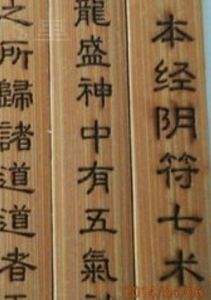 本经阴符七术
龍盛神中有五氣神
之所歸諸道道者天